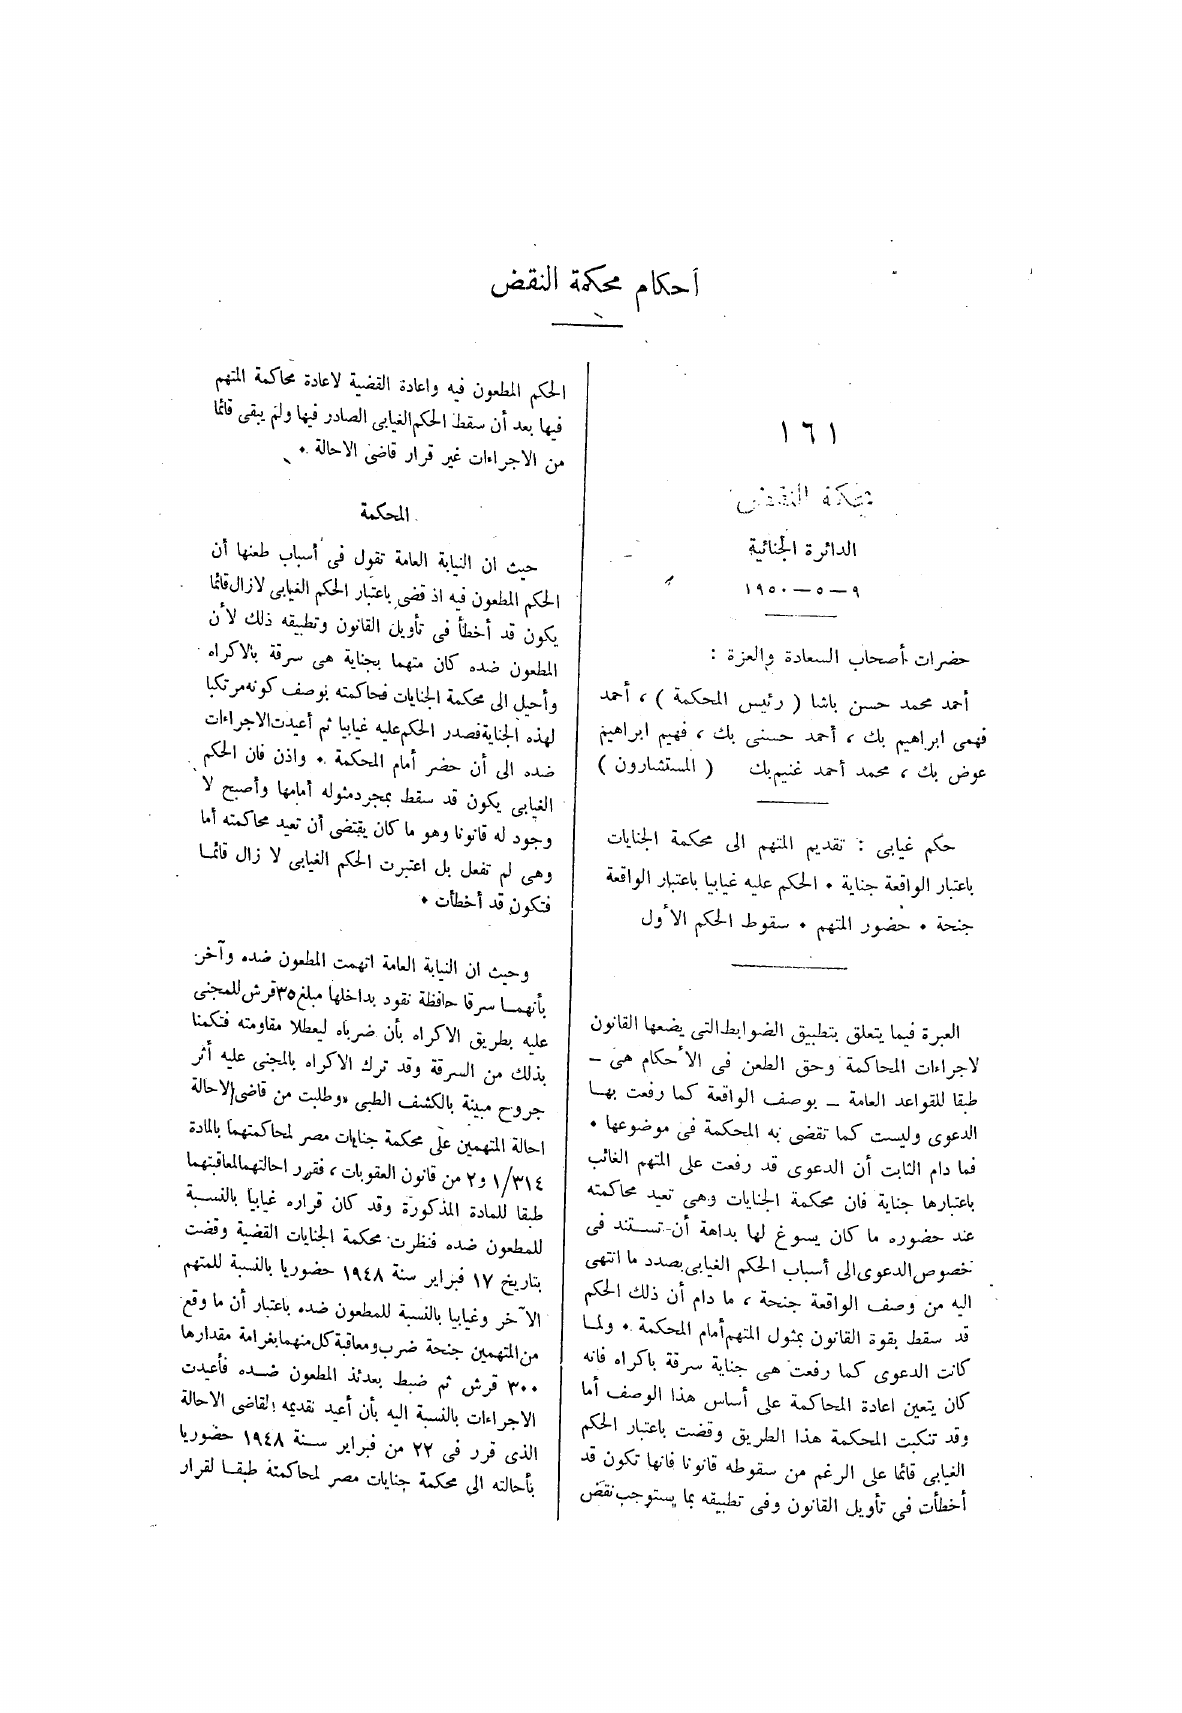 أحكام محكمة النقض
١٦١
محكمة النقض
الدائرة الجنائية
٩ – ٥ – ١٩٥٠
حضرات أصحاب السعادة والعزة :
أحمد محمد حسن باشا ( رئيس المحكمة ) ، أحمد
فهمى ابراهيم بك ، أحمد حسنى بك ، فهيم ابراهيم
عوض بك ، محمد أحمد غنيم بك ( المستشارون )
حكم غيابى : تقديم المتهم الى محكمة الجنايات
باعتبار الواقعة جناية ٠ الحكم عليه غيابيا باعتبار الواقعة
جنحة ٠ حضور المتهم ٠ سقوط الحكم الأول
العبرة فيما يتعلق بتطبيق الضوابط التى يضعها القانون
لاجراءات المحاكمة وحق الطعن فى الأحكام هى –
طبقا للقواعد العامة – بوصف الواقعة كما رفعت بهـا
الدعوى وليست كما تقضى به المحكمة فى موضوعها ٠
فما دام الثابت أن الدعوى قد رفعت على المتهم الغائب
باعتبارها جناية فان محكمة الجنايات وهى تعيد محاكمته
عند حضوره ما كان يسوغ لها بداهة أن تستند فى
خصوص الدعوى الى أسباب الحكم الغيابى بصدد ما انتهى
اليه من وصف الواقعة جنحة ، ما دام أن ذلك الحكم
قد سقط بقوة القانون بمثول المتهم أمام المحكمة ٠ ولمـا
كانت الدعوى كما رفعت هى جناية سرقة باكراه فانه
كان يتعين اعادة المحاكمة على أساس هذا الوصف أما
وقد تنكبت المحكمة هذا الطريق وقضت باعتبار الحكم
الغيابى قائما على الرغم من سقوطه قانونا فانها تكون قد
أخطأت في تأويل القانون وفى تطبيقه بما يستوجب نقض
الحكم المطعون فيه واعادة القضية لاعادة محاكمة المتهم
فيها بعد أن سقط الحكم الغيابى الصادر فيها ولم يبقى قائما
من الاجراءات غير قرار قاضى الاحالة ٠
المحكمة
حيث ان النيابة العامة تقول فى أسباب طعنها أن
الحكم المطعون فيه اذ قضى باعتبار الحكم الغيابى لازال قائما
يكون قد أخطأ فى تأويل القانون وتطبيقه ذلك لأن
المطعون ضده كان متهما بجناية هى سرقة بالاكراه
وأحيل الى محكمة الجنايات فحاكمته بوصف كونه مرتكبا
لهذه الجناية فصدر الحكم عليه غيابيا ثم أعيدت الاجراءات
ضده الى أن حضر أمام المحكمة ٠ واذن فان الحكم
الغيابى يكون قد سقط بمجرد مثوله أمامها وأصبح لا
وجود له قانونا وهو ما كان يقتضى أن تعيد محاكمته أما
وهى لم تفعل بل اعتبرت الحكم الغيابى لا زال قائمـا
فتكون قد أخطأت ٠
وحيث ان النيابة العامة اتهمت المطعون ضده وآخر
بأنهمـا سرقا حافظة نقود بداخلها مبلغ ٣٥ قرش للمجنى
عليه بطريق الاكراه بأن ضرباه ليعطلا مقاومته فتمكنا
بذلك من السرقة وقد ترك الاكراه بالمجنى عليه أثر
جروح مبينة بالكشف الطبى «وطلبت من قاضى الاحالة
احالة المتهمين على محكمة جنايات مصر لمحاكمتهما بالمادة
١/٣١٤ و٢ من قانون العقوبات ، فقرر احالتهما لمعاقبتهما
طبقا للمادة المذكورة وقد كان قراره غيابيا بالنسـبة
للمطعون ضده فنظرت محكمة الجنايات القضية وقضت
بتاريخ ١٧ فبراير سنة ١٩٤٨ حضوريا بالنسبة للمتهم
الآخر وغيابيا بالنسبة للمطعون ضده باعتبار أن ما وقع
من المتهمين جنحة ضرب ومعاقبة كل منهما بغرامة مقدارها
٣٠٠ قرش ثم ضبط بعدئذ المطعون ضـده فأعيدت
الاجراءات بالنسبة اليه بأن أعيد تقديمه لقاضى الاحالة
الذى قرر فى ٢٢ من فبراير سـنة ١٩٤٨ حضوريا
بأحالته الى محكمة جنايات مصر لمحاكمتة طبقـا لقرار